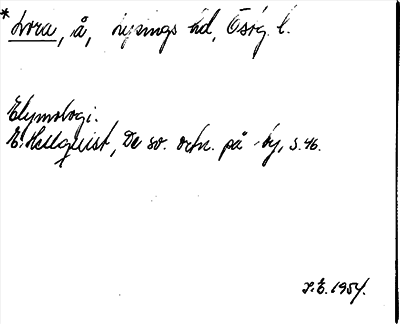 *Lora, å, Lysings hd, Ösög. l.
Etymologi.
E. Hellquist, De sv. ortn. på -by, s. 46.
S.E. 1954.